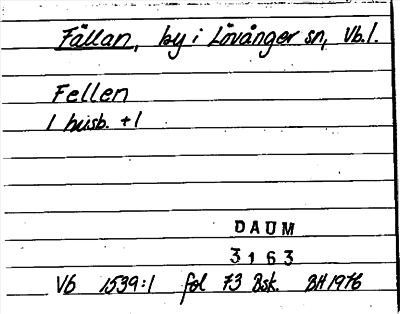 Fällan, by i Lövånger sn, Vb.l.
Fellen
1 husb. +1
DAUM
3163
Vb 1539:1 fol 73 Bsk. BH 1976